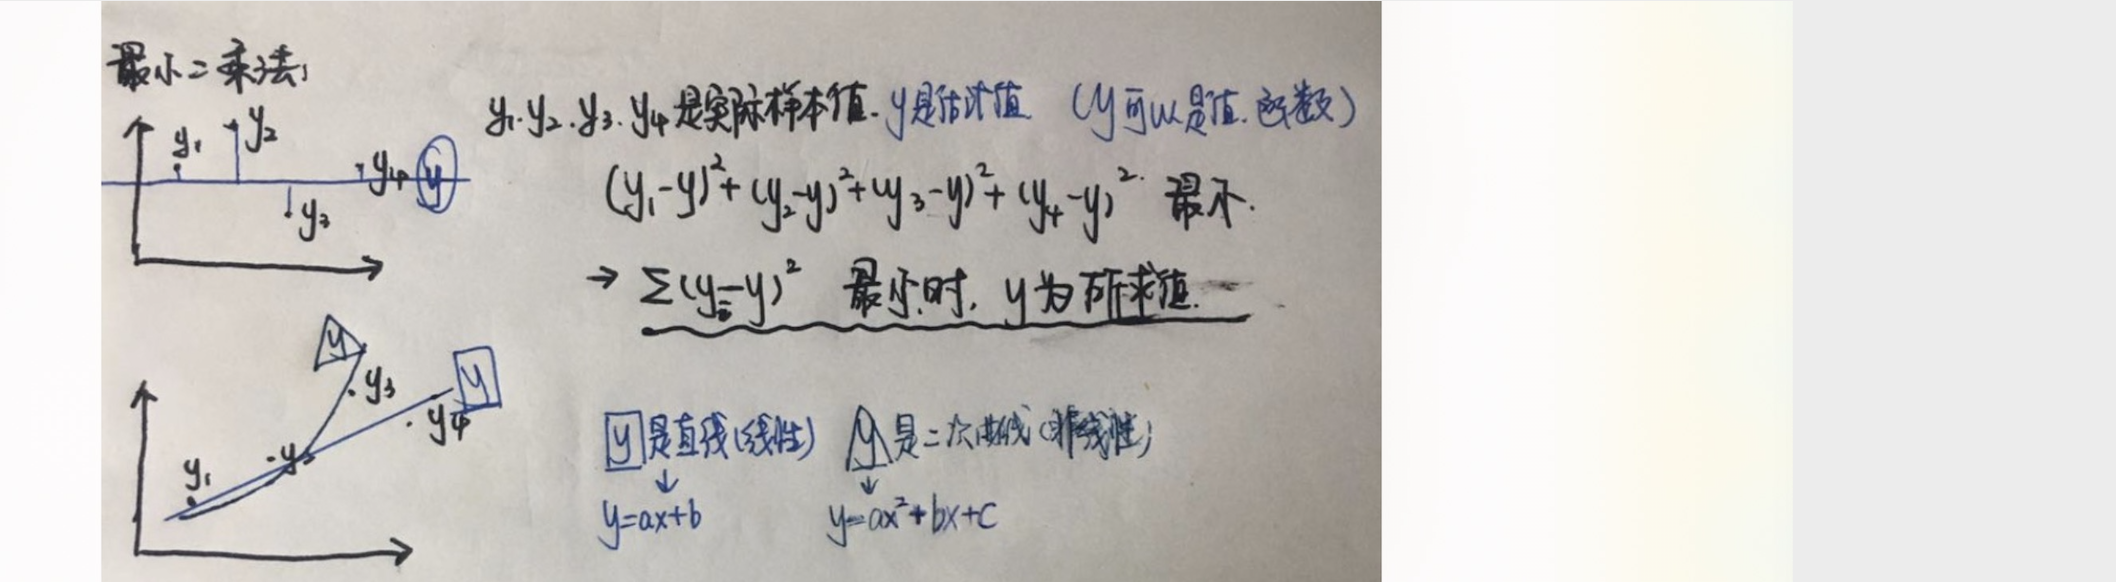 最小二乘法:
y1 y2 y3 y4 y
y1.y2.y3.y4是实际样本值.y是估计值 (y可以是值.函数)
(y1-y)²+(y2-y)²+(y3-y)²+(y4-y)² 最小.
→ Σ(yi-y)² 最小时, y为所求值.
y y
y1 y2 y3 y4
y是直线(线性) y是二次曲线(非线性)
↓ ↓
y=ax+b y=ax²+bx+c